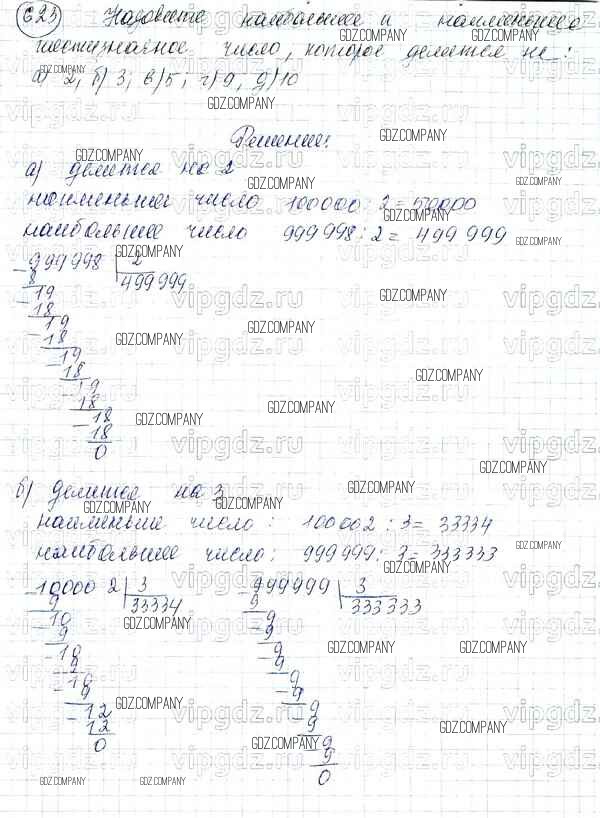 623 Назовите наибольшее и наименьшее
шестизначное число, которое делится на:
а) 2; б) 3; в) 5; г) 9; д) 10
Решение:
а) делится на 2
наименьшее число 100000 : 2 = 50000
наибольшее число 999998 : 2 = 499 999
999998 2
8 499999
19
18
19
18
19
18
19
18
18
18
0
б) делится на 3
наименьшее число: 100002 : 3 = 33334
наибольшее число: 999999 : 3 = 333333
100002 3 999999 3
9 33334 9 333333
10 9
9 9
10 9
9 9
10 9
9 9
12 9
12 9
0 9
9
0
GDZ.COMPANY
vipgdz.ru